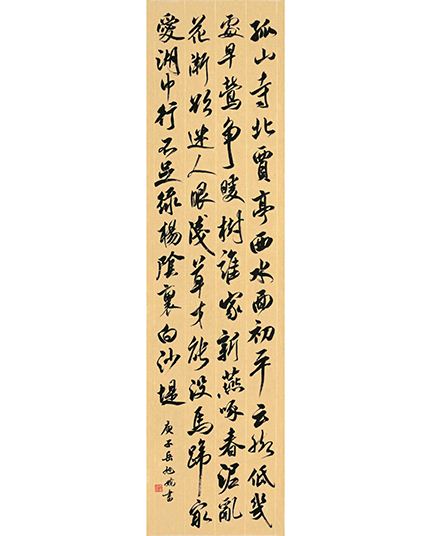 孤山寺北賈亭西水面初平云脚低幾
處早鶯争暖樹誰家新燕啄春泥亂
花漸欲迷人眼淺草才能没馬蹄最
愛湖中行不足绿楊陰裏白沙堤
庚子岳书